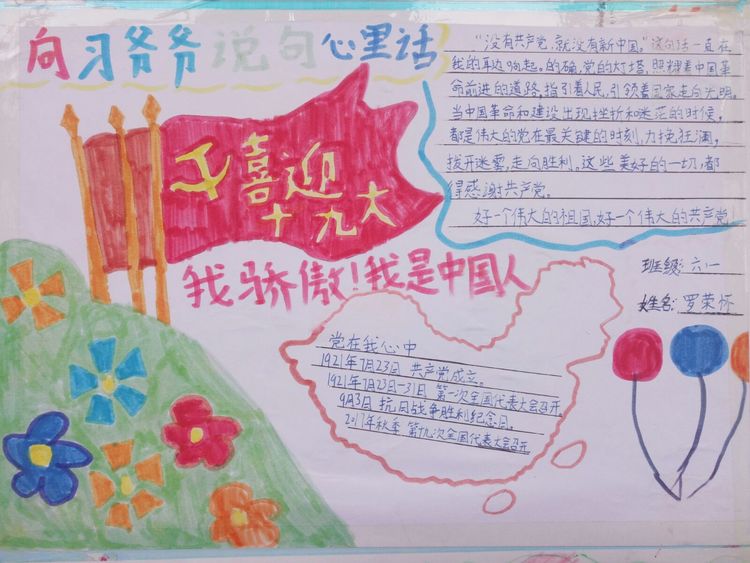 向习爷爷说句心里话
"没有共产党,就没有新中国。"这句话一直在
我的耳边响起。的确,党的灯塔,照耀着中国革
命前进的道路,指引着人民,引领着国家走向光明。
当中国革命和建设出现挫折和迷茫的时候,
都是伟大的党在最关键的时刻,力挽狂澜,
拨开迷雾,走向胜利。这些美好的一切,都
得感谢共产党。
好一个伟大的祖国,好一个伟大的共产党
喜迎
十九大
我骄傲!我是中国人
班级:六一
姓名:罗荣怀
党在我心中
1921年7月23日 共产党成立。
1921年7月23日—31日 第一次全国代表大会召开
9月3日 抗日战争胜利纪念日。
2017年秋季 第十九次全国代表大会召开